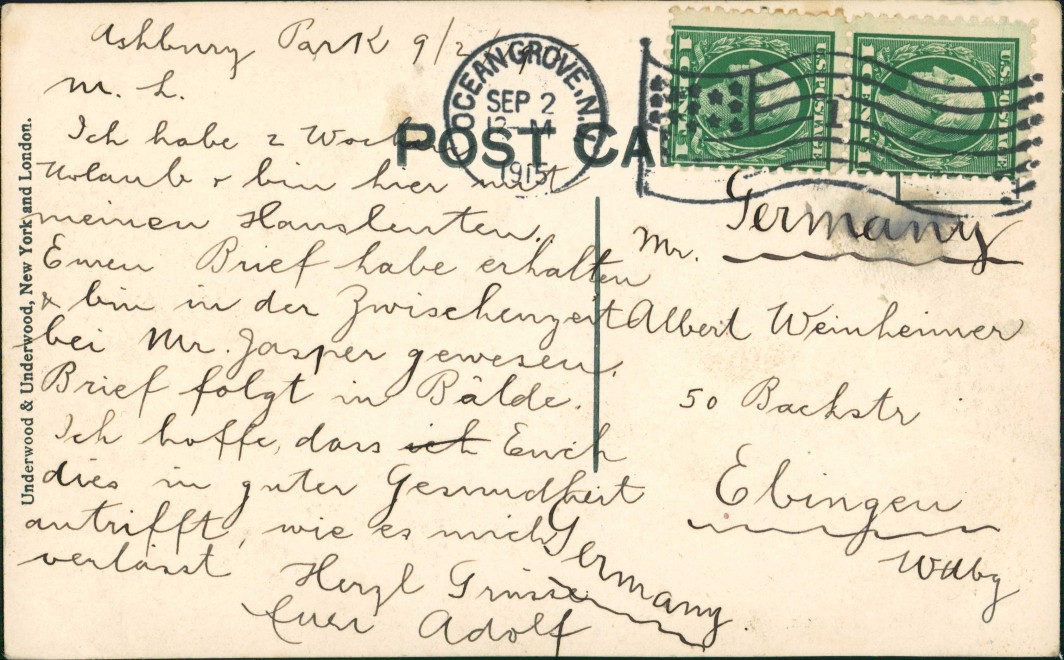 Ashbury Park 9/2/15
M. L.
Ich habe 2 Wochen
Urlaub & bin hier mit
meinen Hausleuten.
Euren Brief habe erhalten
& bin in der Zwischenzeit
bei Mr. Jasper gewesen.
Brief folgt in Bälde.
Ich hoffe, dass ich Euch
dies in guter Gesundheit
antrifft, wie es mich
verlässt
Herzl Grüsse
Euer Adolf
Germany
POST CA
OCEAN GROVE, N.J.
SEP 2
12 M
1915
1
U.S. POSTAGE
U.S. POSTAGE
Germany
Mr.
Albert Weinheimer
50 Backstr
Ebingen
Wttbg
Underwood & Underwood, New York and London.